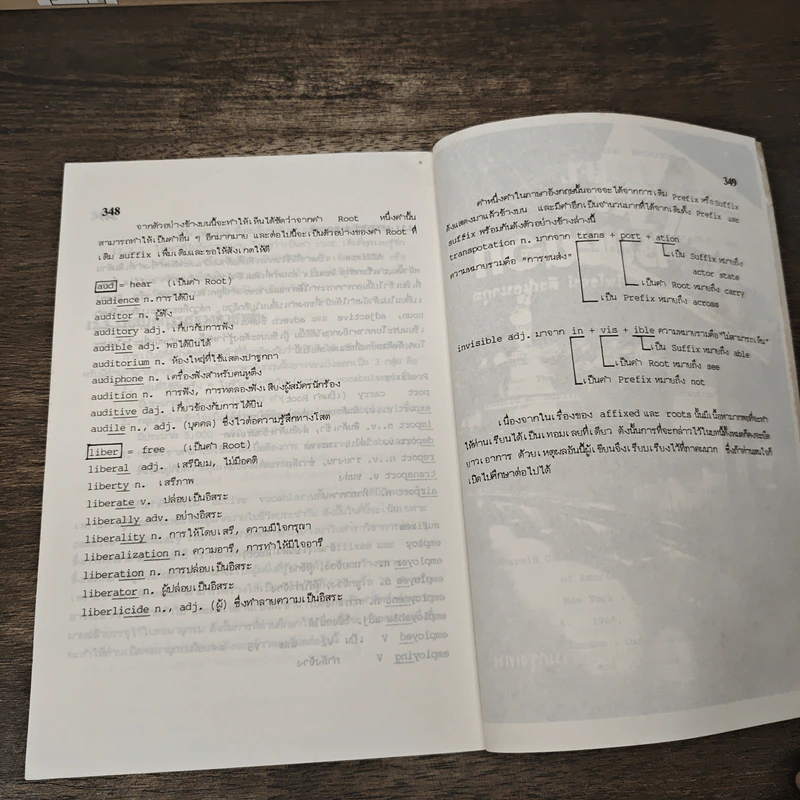 348
จากตัวอย่างข้างบนนี้จะทำให้เห็นได้ชัดว่าจากคำ Root หนึ่งคำนั้น
สามารถทำให้เป็นคำอื่น ๆ อีกมากมาย และต่อไปนี้จะเป็นตัวอย่างของคำ Root ที่
เติม suffix เพิ่มเติมและขอให้สังเกตให้ดี
aud = hear (เป็นคำ Root)
audience n. การได้ยิน
auditor n. ผู้ฟัง
auditory adj. เกี่ยวกับการฟัง
audible adj. พอได้ยินได้
auditorium n. ห้องใหญ่ที่ใช้แสดงปาฐกถา
audiphone n. เครื่องฟังสำหรับคนหูตึง
audition n. การฟัง, การทดลองฟังเสียงผู้สมัครนักร้อง
auditive daj. เกี่ยวข้องกับการได้ยิน
audile n., adj. (บุคคล) ซึ่งไวต่อความรู้สึกทางโสต
liber = free (เป็นคำ Root)
liberal adj. เสรีนิยม, ไม่มีอคติ
liberty n. เสรีภาพ
liberate v. ปล่อยเป็นอิสระ
liberally adv. อย่างอิสระ
liberality n. การให้โดยเสรี, ความมีใจกรุณา
liberalization n. ความอารี, การทำให้มีใจอารี
liberation n. การปล่อยเป็นอิสระ
liberator n. ผู้ปล่อยเป็นอิสระ
liberlicide n., adj. (ผู้) ซึ่งทำลายความเป็นอิสระ
349
คำหนึ่งคำในภาษาอังกฤษนั้นอาจจะได้จากการเติม Prefix หรือ Suffix
ดังแสดงมาแล้วข้างบน และมีคำอีกเป็นจำนวนมากที่ได้จากเติมทั้ง Prefix และ
suffix พร้อมกันดังตัวอย่างข้างล่างนี้
transpotation n. มาจาก trans + port + ation
ความหมายรวมคือ "การขนส่ง"
เป็น Suffix หมายถึง
actor state
เป็นคำ Root หมายถึง carry
เป็น Prefix หมายถึง across
invisible adj. มาจาก in + vis + ible ความหมายรวมคือ "ไม่สามารถเห็น"
เป็น Suffix หมายถึง able
เป็นคำ Root หมายถึง see
เป็นคำ Prefix หมายถึง not
เนื่องจากในเรื่องของ affixed และ roots นั้นมีเนื้อหามากพอที่จะทำ
ให้ท่านเรียนได้เป็นเทอมเลยทีเดียว ดังนั้นการที่จะกล่าวไว้ในบทนี้ทั้งหมดก็คงจะยืด
ยาวเอาการ ด้วยเหตุผลอันนี้ผู้เขียนจึงเรียบเรียงไว้ที่ภาคผนวก ซึ่งถ้าท่านสนใจก็
เปิดไปศึกษาต่อไปได้